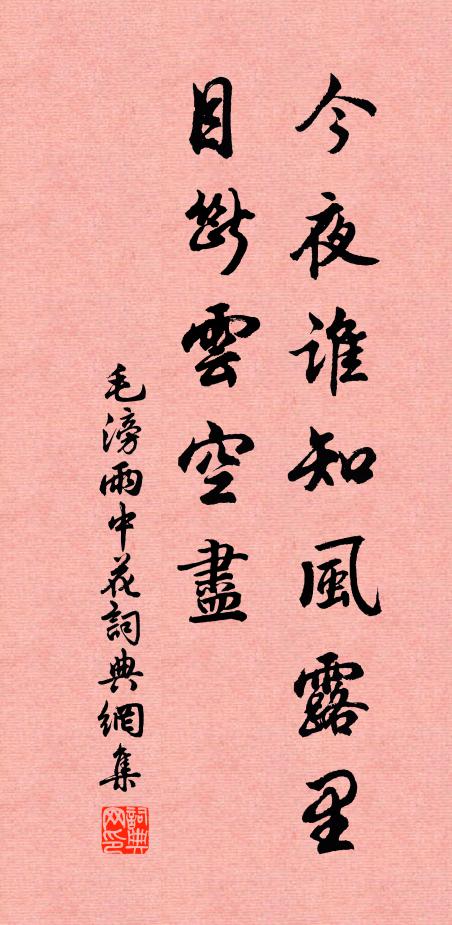 今夜谁知風露里
目斷雲空盡
毛滂雨中花詞典網集
詞典网印